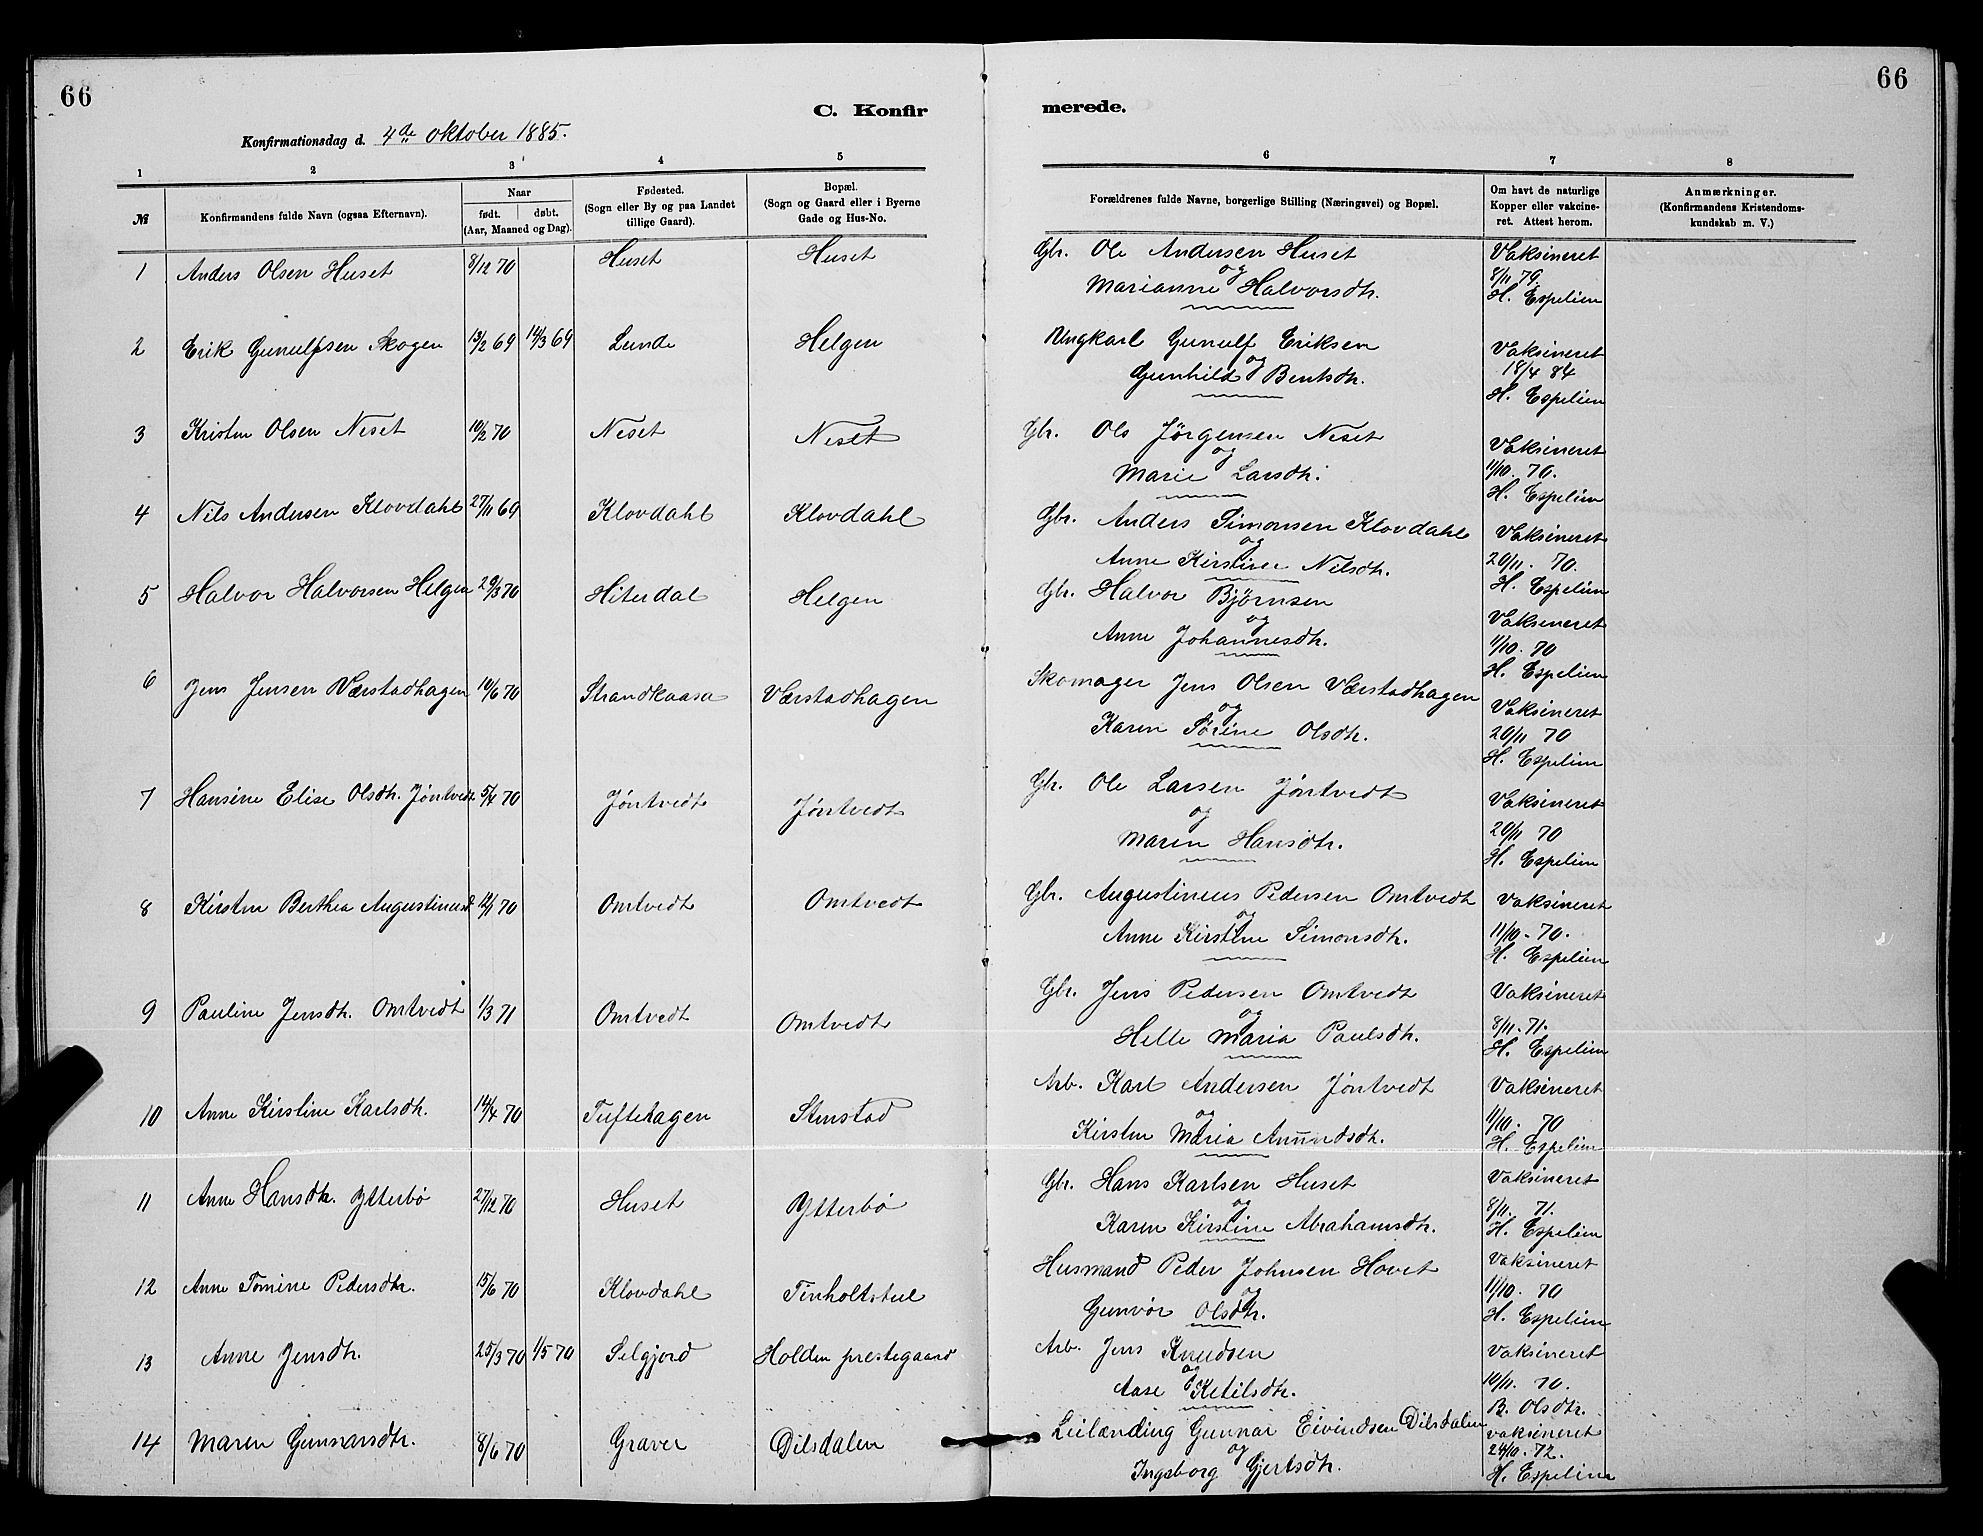 66
66
C. Konfir
merede.
Konfirmationsdag d. 4de Oktober 1885.
1 2 3 4 5 6 7 8
№ Konfirmandens fulde Navn (ogsaa Efternavn).
Naar
født. døbt.
(Aar, Maaned og Dag).
Fødested.
(Sogn eller By og paa Landet
tillige Gaard).
Bopæl.
(Sogn og Gaard eller i Byerne
Gade og Hus-No.
Forældrenes fulde Navne, borgerlige Stilling (Næringsvei) og Bopæl.
Om havt de naturlige
Kopper eller vakcine-
ret. Attest herom.
Anmærkninger.
(Konfirmandens Kristendoms-
kundskab m. V.)
1 Anders Olsen Huset 8/12 70 Huset Huset Gbr. Ole Andersen Huset Vaksineret
og 8/11 79.
Marianne Halvorsdtr. H. Espelien
2 Erik Gunulfsen Skogen 13/2 69 14/3 69 Lunde Helgen Ungkarl Gunulf Eriksen Vaksineret
og 18/4 84
Gunhild Bentsdtr. H. Espelien
3 Kristen Olsen Neset 10/2 70 Neset Neset Gbr. Ole Jørgensen Neset Vaksineret
og 11/10. 70.
Marie Larsdtr. H. Espelien
4 Nils Andersen Klovdahl 27/11 69 Klovdahl Klovdahl Gbr. Anders Simonsen Klovdahl Vaksineret
og 20/11. 70.
Anne Kirstine Nilsdtr. H. Espelien
5 Halvor Halvorsen Helgen 29/3 70 Hiterdal Helgen Gbr. Halvor Bjørnsen Vaksineret
og 11/10. 70
Anne Johannesdtr. H. Espelien
6 Jens Jensen Værstadhagen 10/6 70 Strandkaasa Værstadhagen Skomager Jens Olsen Værstadhagen Vaksineret
og 20/11 70
Karen Sørine Olsdtr. H. Espelien
7 Hansine Elise Olsdtr. Jøntvedt 5/4 70 Jøntvedt Jøntvedt Gbr. Ole Larsen Jøntvedt Vaksineret
og 20/11 70
Maren Hansdtr. H. Espelien
8 Kirsten Berthea Augustinusd 12/1 70 Omtvedt Omtvedt Gbr. Augustinus Pedersen Omtvedt Vaksineret
og 11/10. 70.
Anne Kirstine Simonsdtr. H. Espelien
9 Pauline Jensdtr. Omtvedt 1/3 71 Omtvedt Omtvedt Gbr. Jens Pedersen Omtvedt Vaksineret
og 8/11. 71.
Helle Maria Paulsdtr. H. Espelien
10 Anne Kirstine Karlsdtr. 14/4 70 Tuftehagen Stenstad Arb. Karl Andersen Jøntvedt Vaksineret
og 11/10. 70
Kirsten Maria Amundsdtr. H. Espelien
11 Anne Hansdtr. Ytterbø 27/12 70 Huset Ytterbø Gbr. Hans Karlsen Huset Vaksineret
og 8/11. 71.
Karen Kirstine Abrahamsdtr. H. Espelien
12 Anne Tomine Pedersdtr. 15/6 70 Klovdahl Tinholtstul Husmand Peder Johnsen Hovet Vaksineret
og 11/10. 70
Gunvor Olsdtr. H. Espelien
13 Anne Jensdtr. 25/3 70 1/5 70 Selgjord Holden prestegaard Arb. Jens Knudsen Vaksineret
og 10/11. 70.
Aase Ketilsdtr. B. Olsdtr.
14 Maren Gunnarsdtr. 8/6 70 Graver Dilsdalen Leilænding Gunnar Eivindsen Dilsdalen Vaksineret
og 24/10. 72.
Ingeborg Gjertsdtr. H. Espelien